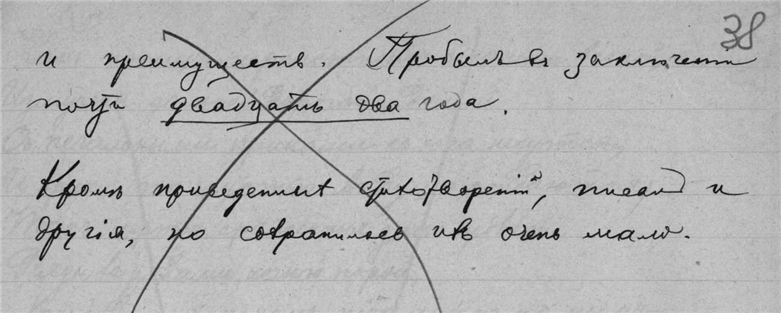 38
и преимуществъ. Пробылъ въ заключеніи
почти двадцать два года.
Кромѣ приведенныхъ стихотвореній, писалъ и
другія, но сохранилось ихъ очень мало.